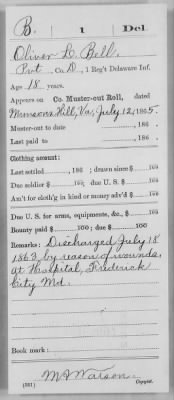 B. 1 Del.
Oliver L. Bell
Pvt, Co. D, 1 Reg't Delaware Inf.
Age 18 years.
Appears on Co. Muster-out Roll, dated
Munsons Hill, Va, July 12, 1865.
Muster-out to date , 186 .
Last paid to , 186 .
Clothing account:
Last settled , 186 ; drawn since $ 100
Due soldier $ 100; due U. S. $ 100
Am't for cloth'g in kind or money adv'd $ 100
Due U. S. for arms, equipments, &c., $ 100
Bounty paid $ 100; due $ 100
Remarks: Discharged July 18
1863 by reason of wounds
at Hospital, Frederick
City Md.
Book mark:
Watson
(361) Copyist.